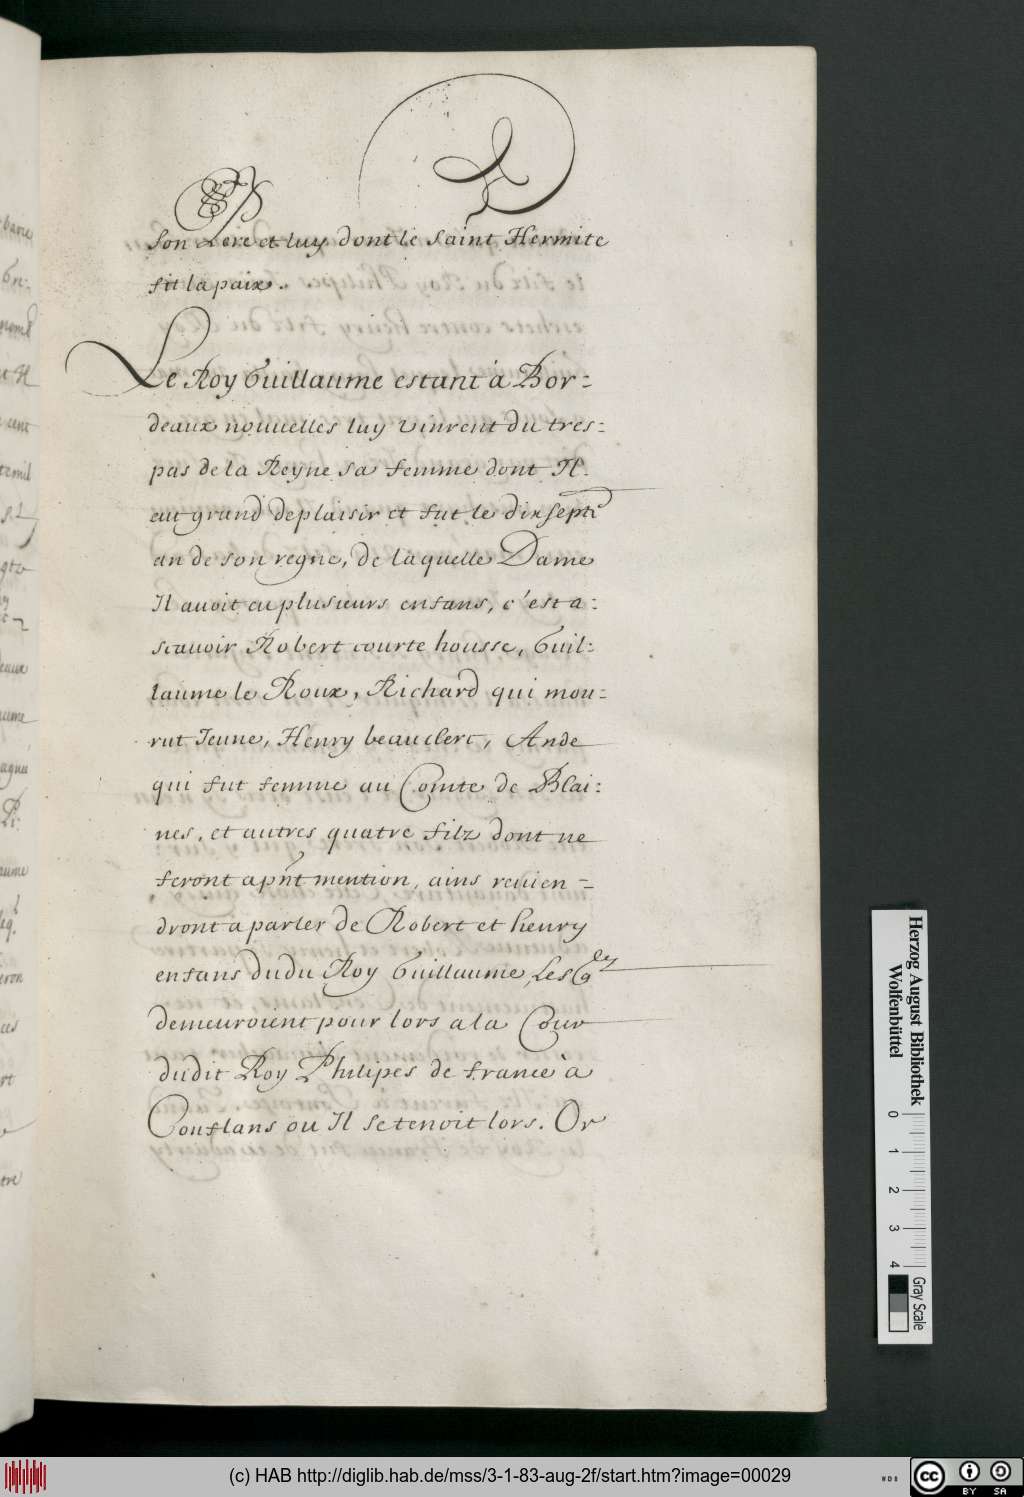 son Pere et luy dont le saint Hermite
fit la paix.
Le Roy Guillaume estant à Bor=
deaux nouuelles luy vinrent du tres=
pas de la Reyne sa femme dont Il
eut grand deplaisir et fut le dixsepti^e
an de son regne, de laquelle Dame
Il auoit eu plusieurs enfans, c'est a=
scauoir Robert courte housse, Guil=
laume le Roux, Richard qui mou=
rut Jeune, Henry beauclerc, Ande
qui fut femme au Comte de Blai=
nes, et autres quatre filz dont ne
feront apnt mention, ains reuien=
dront a parler de Robert et henry
enfans dudu Roy Guillaume, Lesq
demeuroient pour lors a la Cour
dudit Roy Philipes de france à
Conflans ou Il se tenoit lors. Or
Herzog August Bibliothek
Wolfenbüttel
0 1 2 3 4
Gray Scale
(c) HAB http://diglib.hab.de/mss/3-1-83-aug-2f/start.htm?image=00029
WDB
cc BY SA